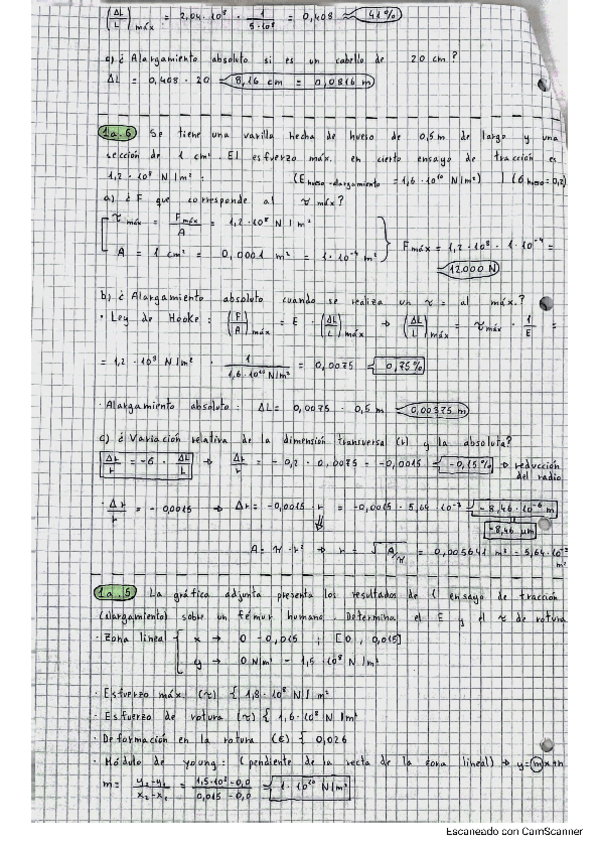 (ΔL/L) máx = 2,04 · 10⁸ · 1/(5·10⁸) = 0,408 ≈ 41%
c) ¿ Alargamiento absoluto si es un cabello de 20 cm ?
ΔL = 0,408 · 20 = 8,16 cm = 0,0816 m
1a.6 Se tiene una varilla hecha de hueso de 0,5 m de largo y una
sección de 1 cm². El esfuerzo máx. en cierto ensayo de tracción es
1,2 · 10⁸ N/m². (E hueso-alargamiento = 1,6 · 10¹⁰ N/m²) | (σ hueso = 0,2)
a) ¿ F que corresponde al τ máx ?
τ máx = F máx / A = 1,2 · 10⁸ N/m²
A = 1 cm² = 0,0001 m² = 1 · 10⁻⁴ m² } F máx = 1,2 · 10⁸ · 1 · 10⁻⁴ =
12000 N
b) ¿ Alargamiento absoluto cuando se realiza un τ = al máx.?
· Ley de Hooke : (F/A) máx = E · (ΔL/L) máx → (ΔL/L) máx = τ máx · 1/E =
= 1,2 · 10⁸ N/m² · 1/(1,6 · 10¹⁰ N/m²) = 0,0075 = 0,75%
· Alargamiento absoluto : ΔL = 0,0075 · 0,5 m = 0,00375 m
c) ¿ Variación relativa de la dimensión transversa (r) y la absoluta?
Δr/r = -σ · ΔL/L → Δr/r = - 0,2 · 0,0075 = -0,0015 = -0,15% → reducción
del radio
· Δr/r = - 0,0015 → Δr = -0,0015 · r = -0,0015 · 5,64 · 10⁻³ = -8,46 · 10⁻⁶ m
-8,46 μm
A = π · r² → r = √(A/π) = 0,005641 m² - 5,64 · 10⁻³
m²
1a.5 La gráfica adjunta presenta los resultados de 1 ensayo de tracción
(alargamiento) sobre un fémur humano. Determina el E y el τ de rotura
· Zona lineal { x → 0 - 0,015 ; [0, 0,015]
y → 0 N/m² - 1,5 · 10⁸ N/m²
· Esfuerzo máx. (τ) { 1,8 · 10⁸ N/m²
· Esfuerzo de rotura (τ) { 1,6 · 10⁸ N/m²
· Deformación en la rotura (ε) { 0,026
· Módulo de young : (pendiente de la recta de la zona lineal) → y = mx+n
m = (y₂-y₁)/(x₂-x₁) = (1,5·10⁸ - 0,0)/(0,015 - 0,0) = 1 · 10¹⁰ N/m²
Escaneado con CamScanner